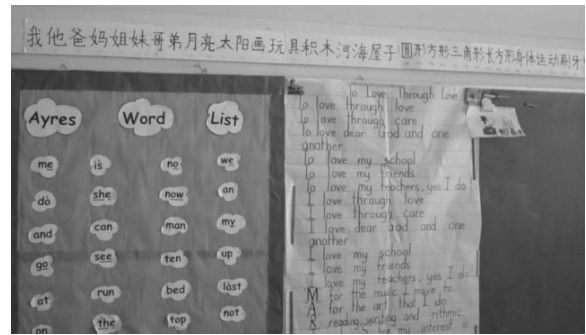 我他爸妈姐妹哥弟月亮太阳画玩具积木河海屋子圆形方形三角形长方形身体运动刷牙
Ayres Word List
me is no we
do she now an
and can man my
go see ten up
at run bed last
on the top not
To Love Through Love
To love through love
To love through care
To love dear God and one
another
To love my school
To love my friends
To love my teachers, yes I do
I love through love
I love through care
I love dear God and one
another
I love my school
I love my friends
I love my teachers, yes I do
M for the music I move to
A for the art that I do
R reading, writing and rithmic
for my interest in